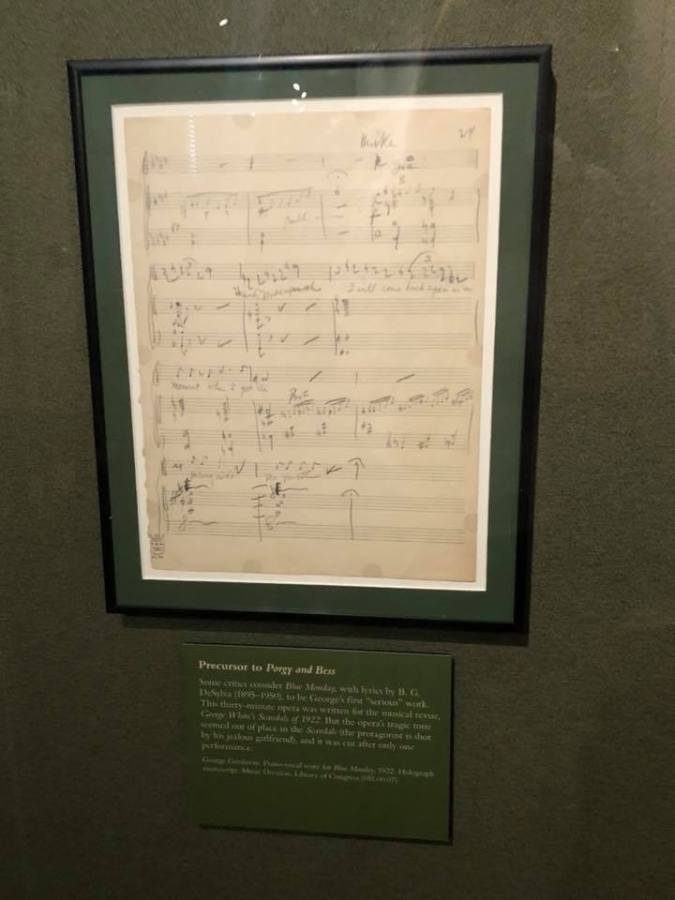 Mike
24
I will come back again in a
moment when I get the
Precursor to Porgy and Bess
Some critics consider Blue Monday, with lyrics by B. G.
DeSylva (1895–1950), to be George's first "serious" work.
This thirty-minute opera was written for the musical revue,
George White's Scandals of 1922. But the opera's tragic tone
seemed out of place in the Scandals (the protagonist is shot
by his jealous girlfriend), and it was cut after only one
performance.
George Gershwin. Piano-vocal score for Blue Monday, 1922. Holograph
manuscript. Music Division, Library of Congress